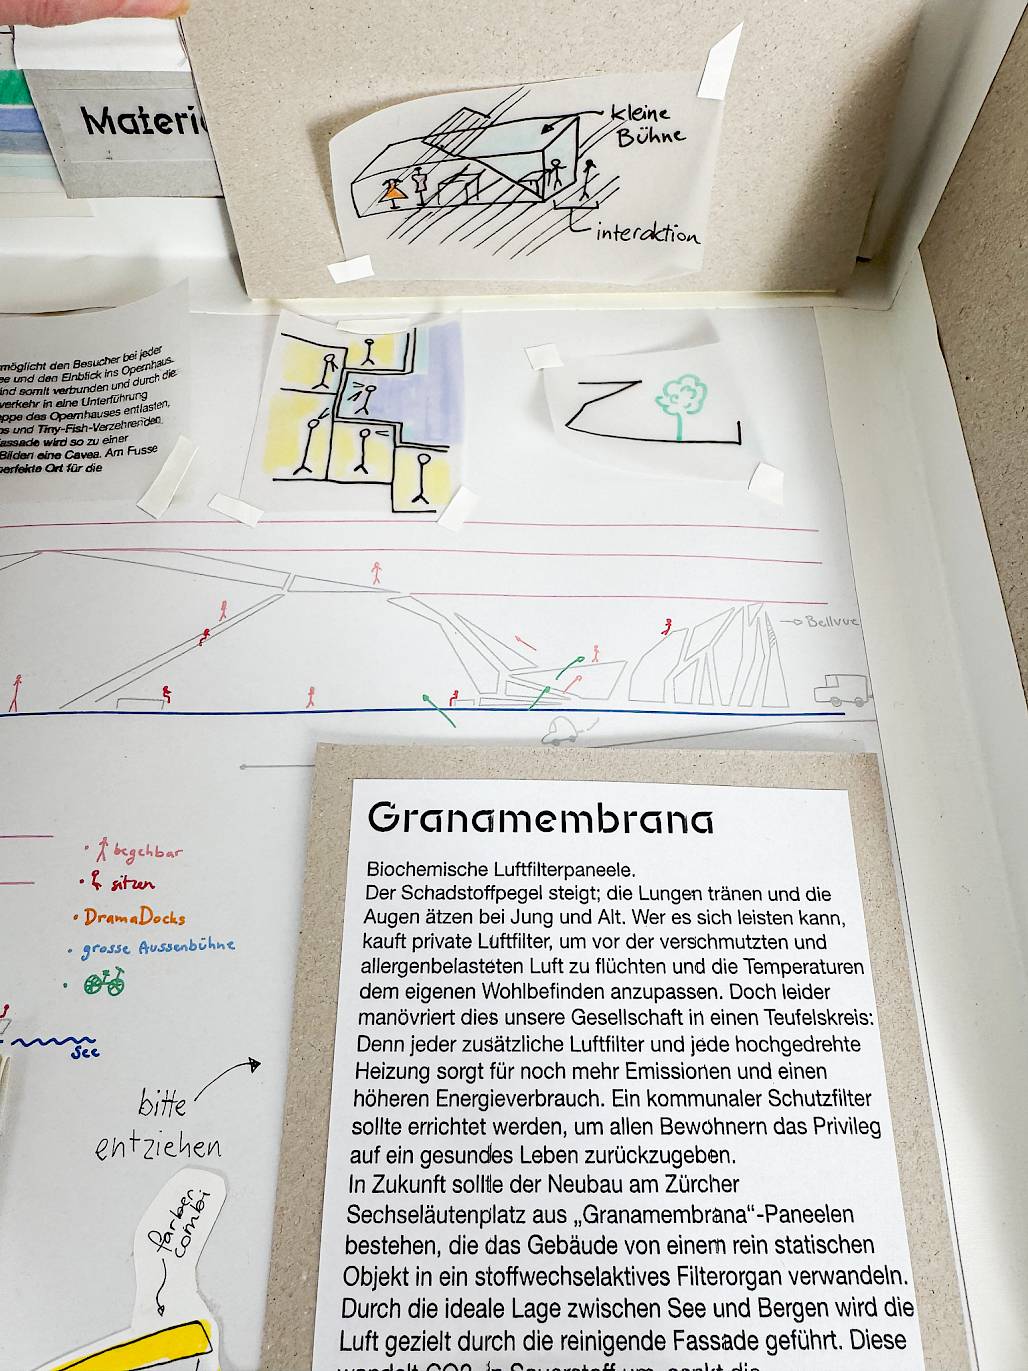 Materi
kleine
Bühne
interaktion
möglicht den Besucher bei jeder
ee und den Einblick ins Opernhaus.
ind somit verbunden und durch die
verkehr in eine Unterführung
ppe des Opernhauses entlasten,
s und Tiny-Fish-Verzehrenden
assade wird so zu einer
Bilden eine Cavea. Am Fusse
perfekte Ort für die
Bellvue
begehbar
sitzen
DramaDocks
grosse Aussenbühne
See
bitte
entziehen
farben
combi
Granamembrana
Biochemische Luftfilterpaneele.
Der Schadstoffpegel steigt; die Lungen tränen und die
Augen ätzen bei Jung und Alt. Wer es sich leisten kann,
kauft private Luftfilter, um vor der verschmutzten und
allergenbelasteten Luft zu flüchten und die Temperaturen
dem eigenen Wohlbefinden anzupassen. Doch leider
manövriert dies unsere Gesellschaft in einen Teufelskreis:
Denn jeder zusätzliche Luftfilter und jede hochgedrehte
Heizung sorgt für noch mehr Emissionen und einen
höheren Energieverbrauch. Ein kommunaler Schutzfilter
sollte errichtet werden, um allen Bewohnern das Privileg
auf ein gesundes Leben zurückzugeben.
In Zukunft sollte der Neubau am Zürcher
Sechseläutenplatz aus „Granamembrana“-Paneelen
bestehen, die das Gebäude von einem rein statischen
Objekt in ein stoffwechselaktives Filterorgan verwandeln.
Durch die ideale Lage zwischen See und Bergen wird die
Luft gezielt durch die reinigende Fassade geführt. Diese
wandelt CO2 in Sauerstoff um, senkt die